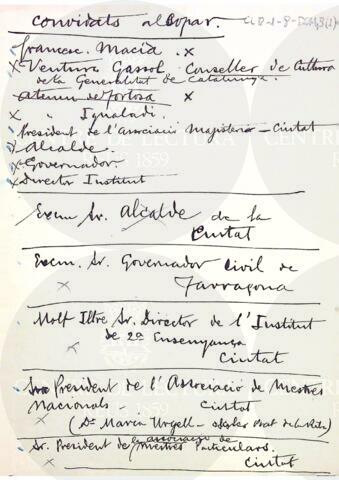 Convidats al Sopar.
Francesc Macià x
x Ventura Gassol, Conseller de Cultura
de la Generalitat de Catalunya.
Ateneu de Tortosa x
x " Igualadí.
President de l'Associació Magisteri - Ciutat
x Alcalde.
x Governador.
x Director Institut
Excm Sr. Alcalde de la
Ciutat
Excm. Sr. Governador Civil de
Tarragona
x
Molt Iltre Sr. Director de l'Institut
de 2ª Ensenyança
x Ciutat
Sr. President de l'Associació de Mestres
Nacionals - Ciutat
x (Dn Marca Urgell -
la associació de
Sr. President de mestres Particulars.
x Ciutat
CENTRE DE LECTURA
1859